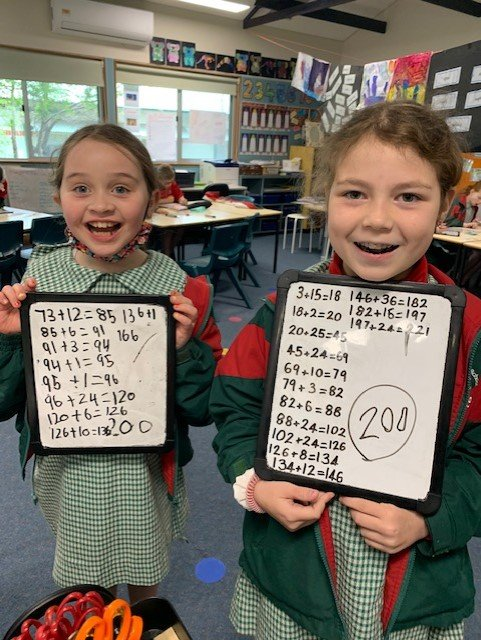 73+12=85 136+1
85+6=91 166
91+3=94
94+1=95
95 +1=96
96+24=120
120+6=126
126+10=136 200
3+15=18 146+36=182
18+2=20 182+15=197
20+25=45 197+24=221
45+24=69
69+10=79
79+3=82
82+6=88
88+24=102
102+24=126
126+8=134
134+12=146
200